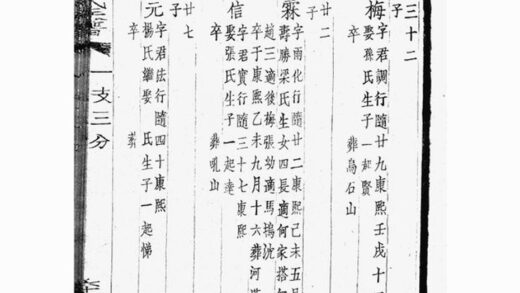 三十二
子
梅 字君調行隨廿九康熙壬戌十
娶孫氏生子一起賢
卒 葬烏石山
廿二
子
霖 字雨化行隨廿二康熙己未五
壽勝梁氏生女四長適何家搭
趙三適後梅張幼適馬塢沈
卒于康熙乙未九月十六葬河
信 字君實行隨三十七康熙
娶張氏生子一起達
卒 葬吼山
廿七
子
元 字君法行隨四十康熙
楊氏繼娶 氏生子一起悌
卒 葬
一支三分